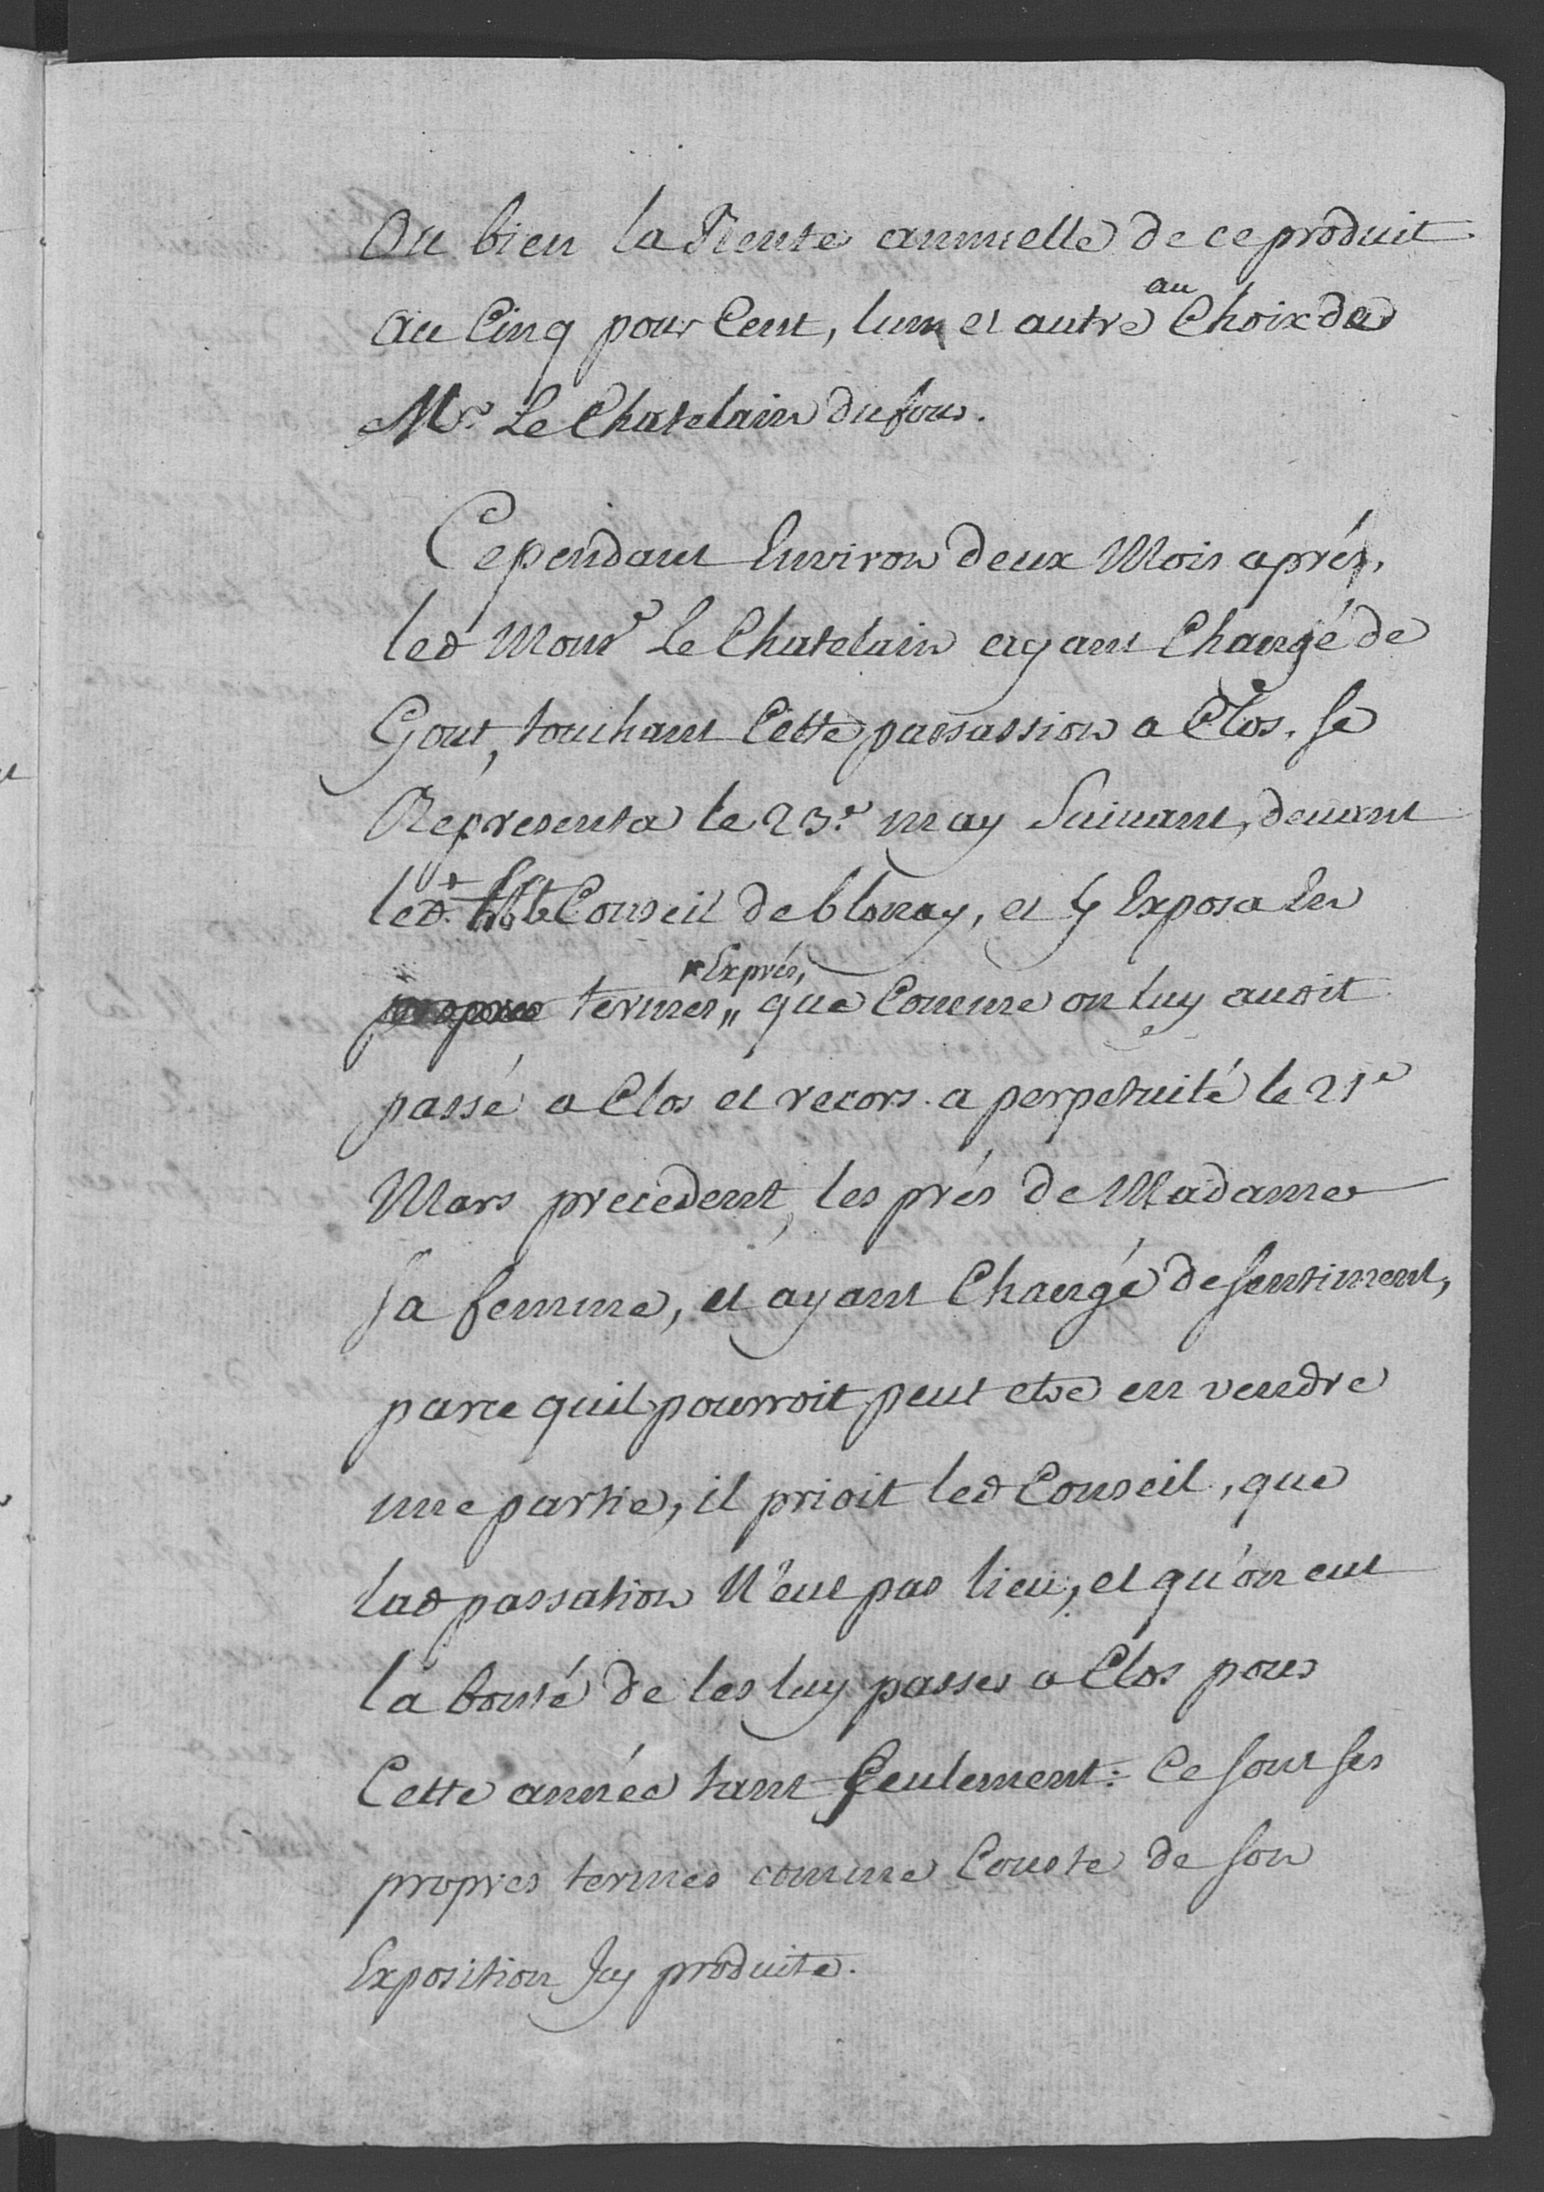 Ou bien la Rente annuelle de ce produit
au Cinq pour Cent, lun et autre au Choix de
Mr. Le Chatelain dufour.
Cependant Environ deux Mois aprés,
led Monsr Le Chatelain ayant Changé de
Gout, touchant Cette passassion a Clos, Se
Répresenta le 23e may Suivant, devant
led. Conseil de blonay, et y Exposa En
propres termes Exprés, " que Comme on luy avoit
passé a Clos et recors a perpetuité le 21e
Mars precedent, les prés de Madame
Sa femme, et ayant Changé de Sentiment,
parce quil pourroit peut etre en vendre
une partie, il prioit led Conseil, que
lad passation N'eut pas lieu, et qu'on eut
la bonté de les luy passer a Clos pour
Cette année tant Seulement: Ce Sont Ses
propres termes comme Conste de Son
Exposition Icy produite.